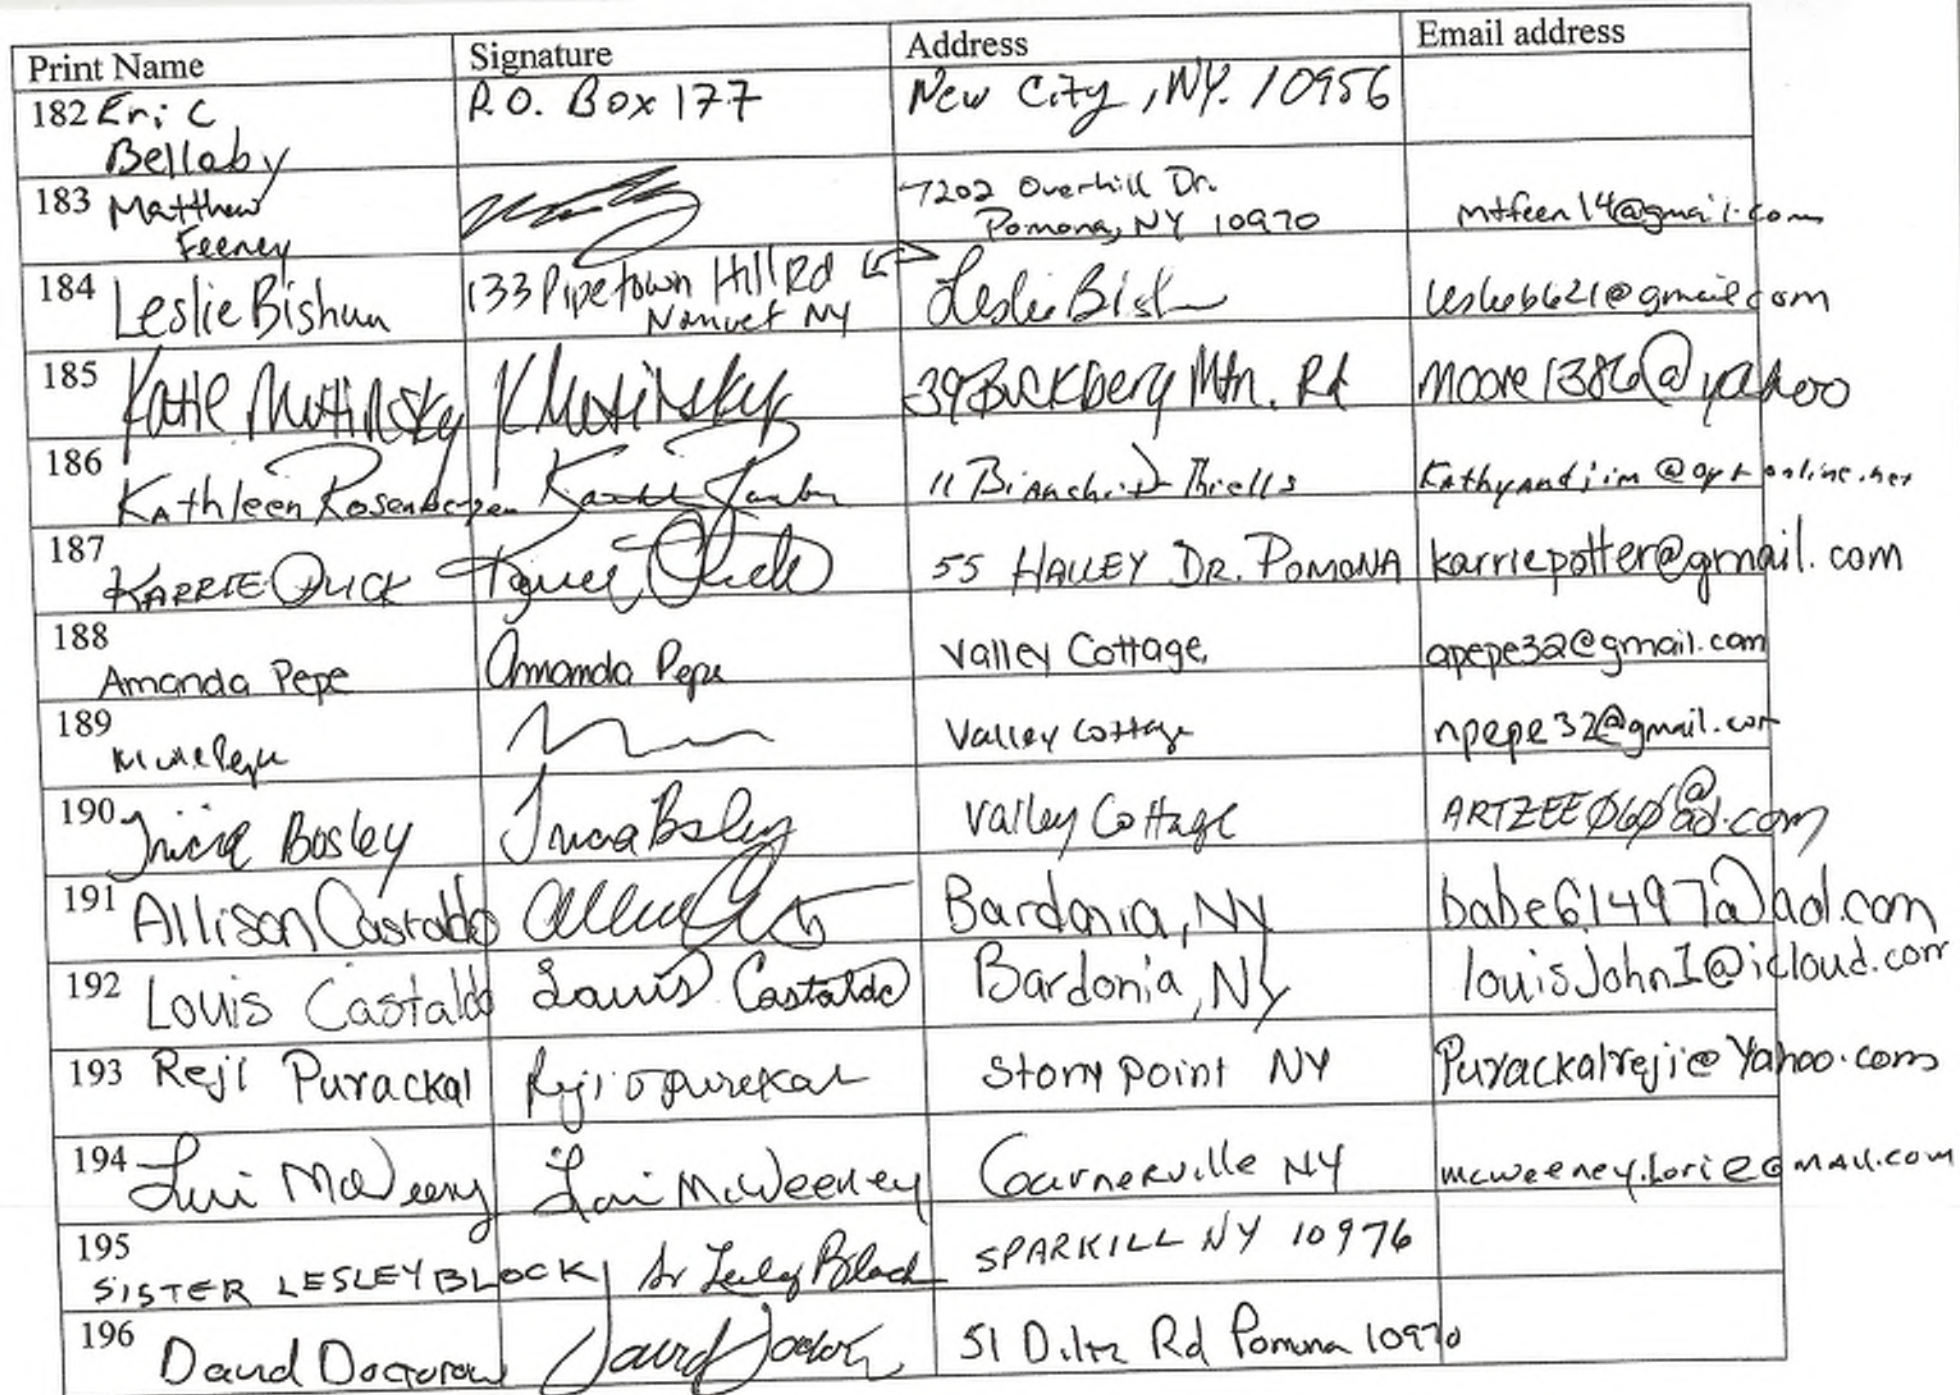 Print Name Signature Address Email address
182 Eric P.O. Box 177 New City, NY. 10956
Bellaby
183 Matthew 7202 Overhill Dr.
Feeney Pomona, NY 10970 mtfeen14@gmail.com
184 Leslie Bishun 133 Pipetown Hill Rd Leslie Bish leslie6621@gmail.com
Nanuet NY
185 Katie Mutinsky K Mutinsky 39 Buckberg Mtn. Rd moore1386@yahoo
186 Kathleen Rosenbergen 11 Thiells Kathyandjim@optonline.net
187 KARRIE 55 HALLEY DR. POMONA karriepotter@gmail.com
188 Amanda Pepe Amanda Pepe Valley Cottage, apepe32@gmail.com
189 Valley Cottage npepe32@gmail.com
190 Tricia Bosley Tricia Bosley Valley Cottage ARTZEE060@aol.com
191 Allison Castaldo Bardonia, NY babe61497@aol.com
192 Louis Castaldo Louis Castaldo Bardonia, NY louisJohn1@icloud.com
193 Reji Purackal Stony point NY Purackalreji@Yahoo.com
194 Lori McWeeney Lori McWeeney Garnerville NY mcweeney.Lori@GMAIL.com
195 SISTER LESLEY BLOCK Sr Lesley Block SPARKILL NY 10976
196 David Doctorow 51 Rd Pomona 10970